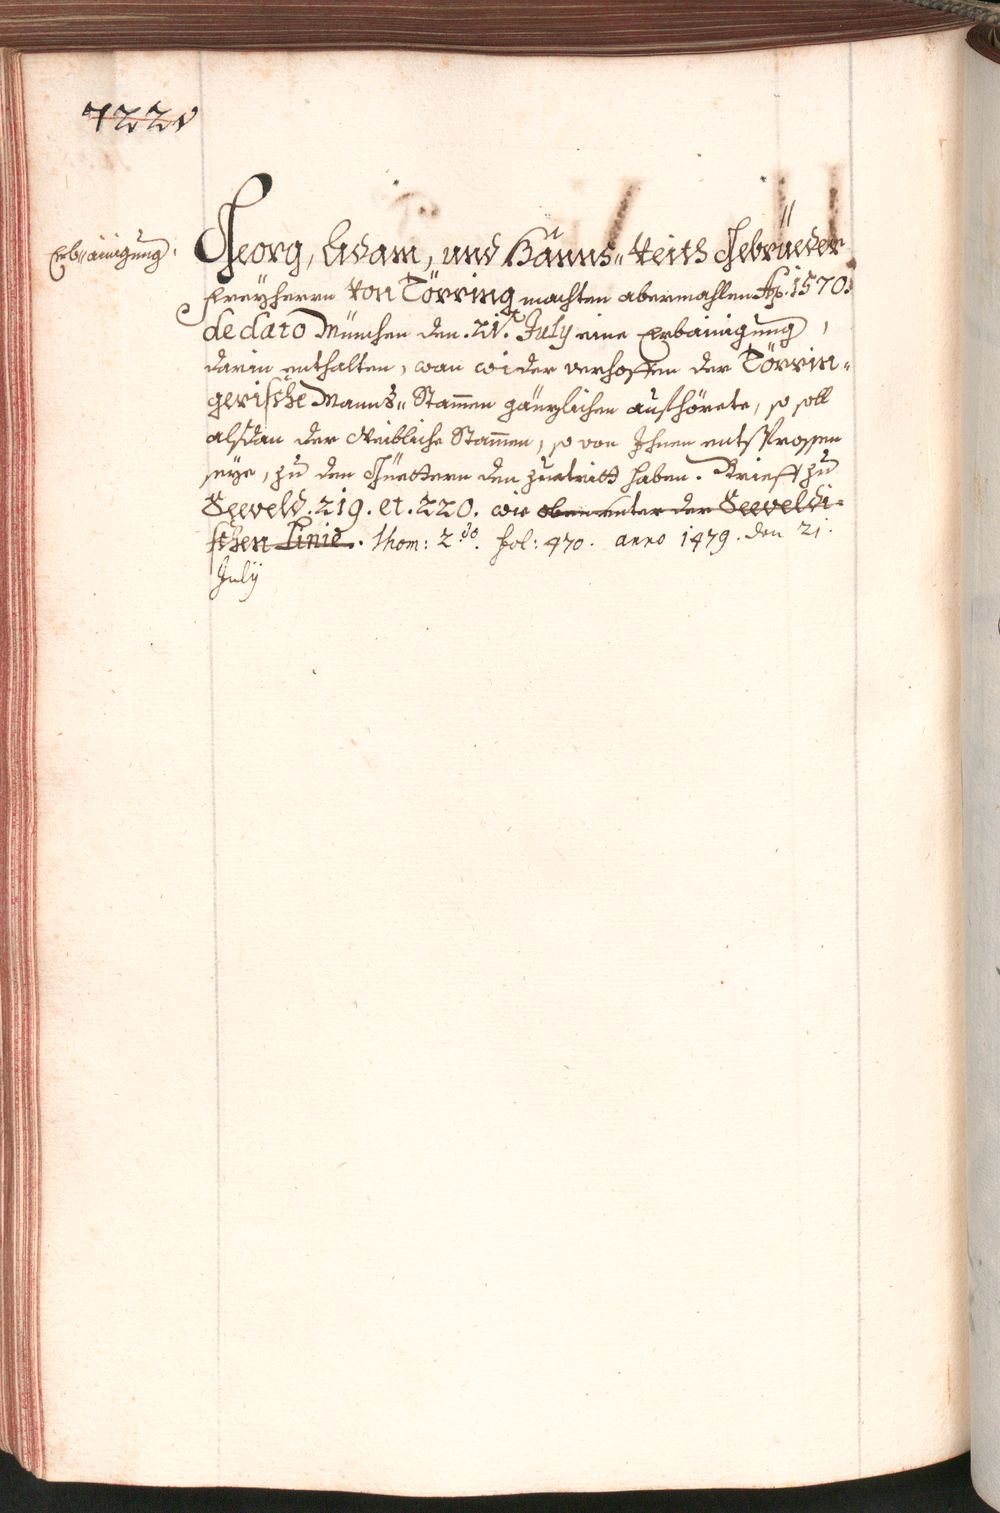 722v
Erb-ainigung.
Georg, Adam, und Hanns-Veith Gebrüeder
Freyherrn von Törring machten abermahlen Ao. 1570.
de dato München den .21. July eine Erbainigung,
darin enthalten, wan wider verhoffen der Törrin-
gerische Manns-Stammen gänzlichen aufhörete, so soll
alsdan der Weibliche Stammen, so von Ihnen entsprossen
seye, zu den Güettern den zuetritt haben. Brieff zu
Seeveld. 219. et. 220. wie oben unter der Seeveldi-
schen Linie. thom: 2do. fol: 470. anno 1479. den 21.
July